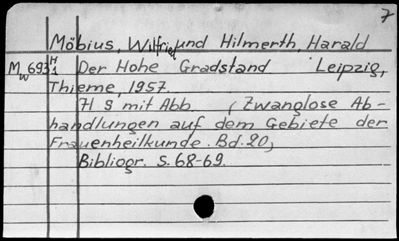 7
Möbius, Wilfried und Hilmerth, Harald
Mw 693 H1 Der Hohe Gradstand Leipzig,
Thieme, 1957.
71 S mit Abb. (Zwanglose Ab-
handlungen auf dem Gebiete der
Frauenheilkunde. Bd. 20)
Bibliogr. S. 68-69.